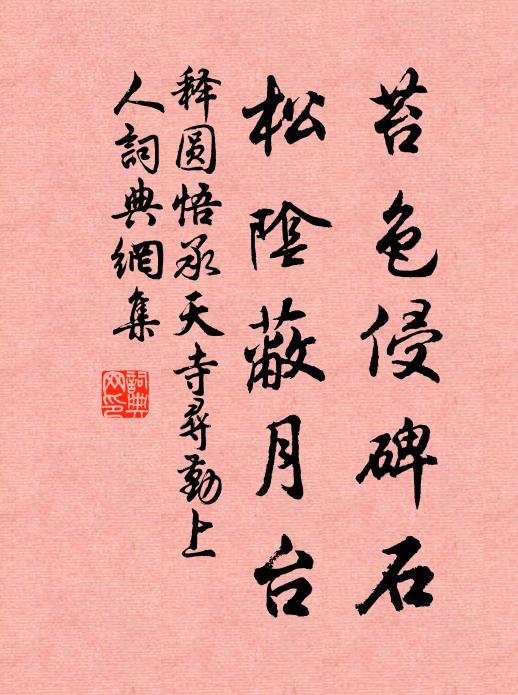 苔色侵碑石
松陰蔽月台
释圆悟承天寺尋勤上
人詞典網集
詞典
网印